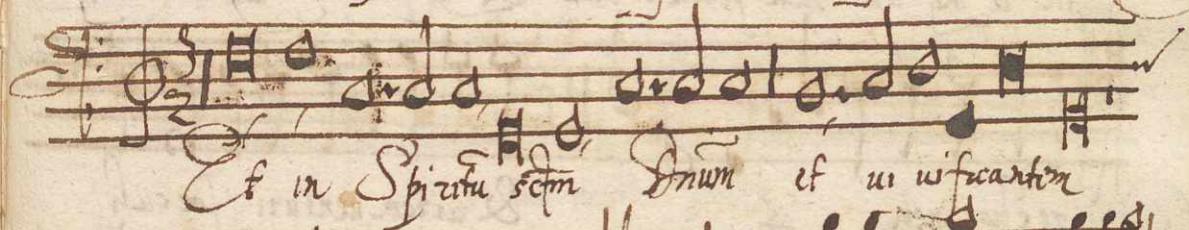 Et in Spiritũ sctm̃ Dnum̃ et ui uificantem